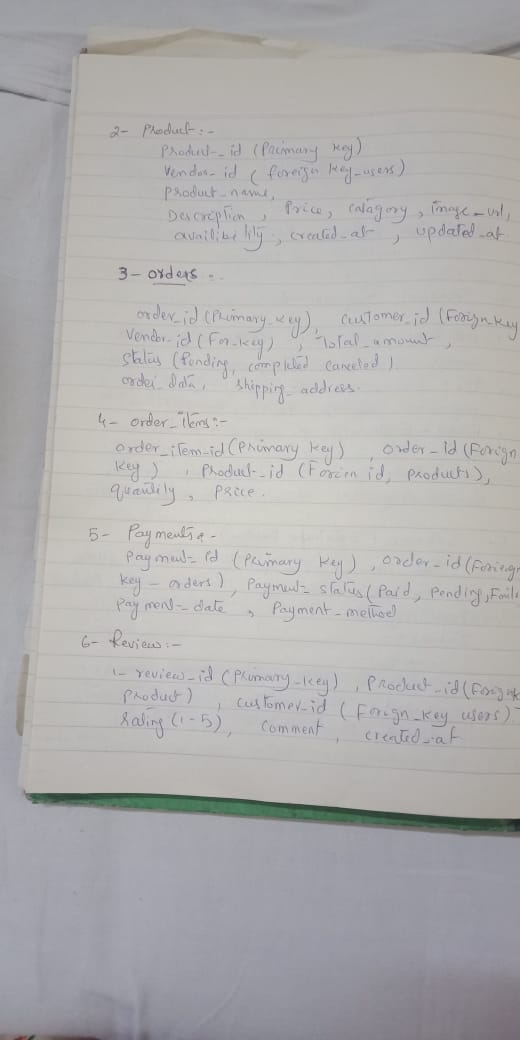 2- Product:-
Product-id (Primary key)
Vendor-id (foreign key-users)
Product-name,
Description, Price, catagory, image-url,
availibility, created-at, updated-at
3- orders :-
order-id (Primary-key), customer-id (Forign key
Vendor-id (For-key), Total-amount,
status (Pending, completed canceled)
order data, shipping-address.
4- order-items:-
order-item-id (Primary key), order-id (Forign
key), Product-id (Forien id, products),
quantity, price.
5- Payments:-
Payment-id (Primary key), order-id (Foriegn
key-orders), Payment-status (Paid, Pending, Faile
Payment-date, Payment-method
6- Review:-
1- review-id (Primary-key), Product-id (Forign k
product), customer-id (Forign-key users)
Rating (1-5), comment, created-at